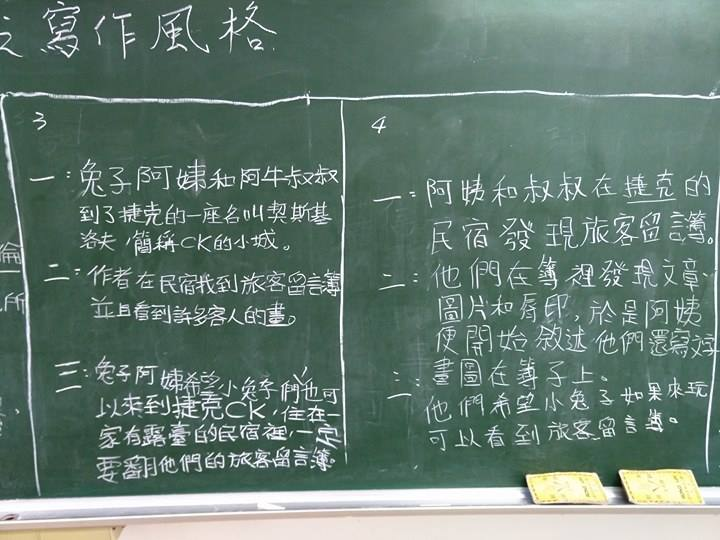 寫作風格
3
一：兔子阿姨和阿牛叔叔
到了捷克的一座名叫契斯基
洛夫，簡稱CK的小城。
二：作者在民宿找到旅客留言簿
並且看到許多客人的畫。
三：兔子阿姨希望小兔子們也可
以來到捷克CK，住在一
家有露臺的民宿裡，一定
要翻他們的旅客留言簿。
4
一：阿姨和叔叔在捷克的
民宿發現旅客留言簿。
二：他們在簿裡發現文章、
圖片和唇印，於是阿姨
便開始敘述他們還寫文字
畫圖在簿子上。
三：他們希望小兔子如果來玩
可以看到旅客留言簿。